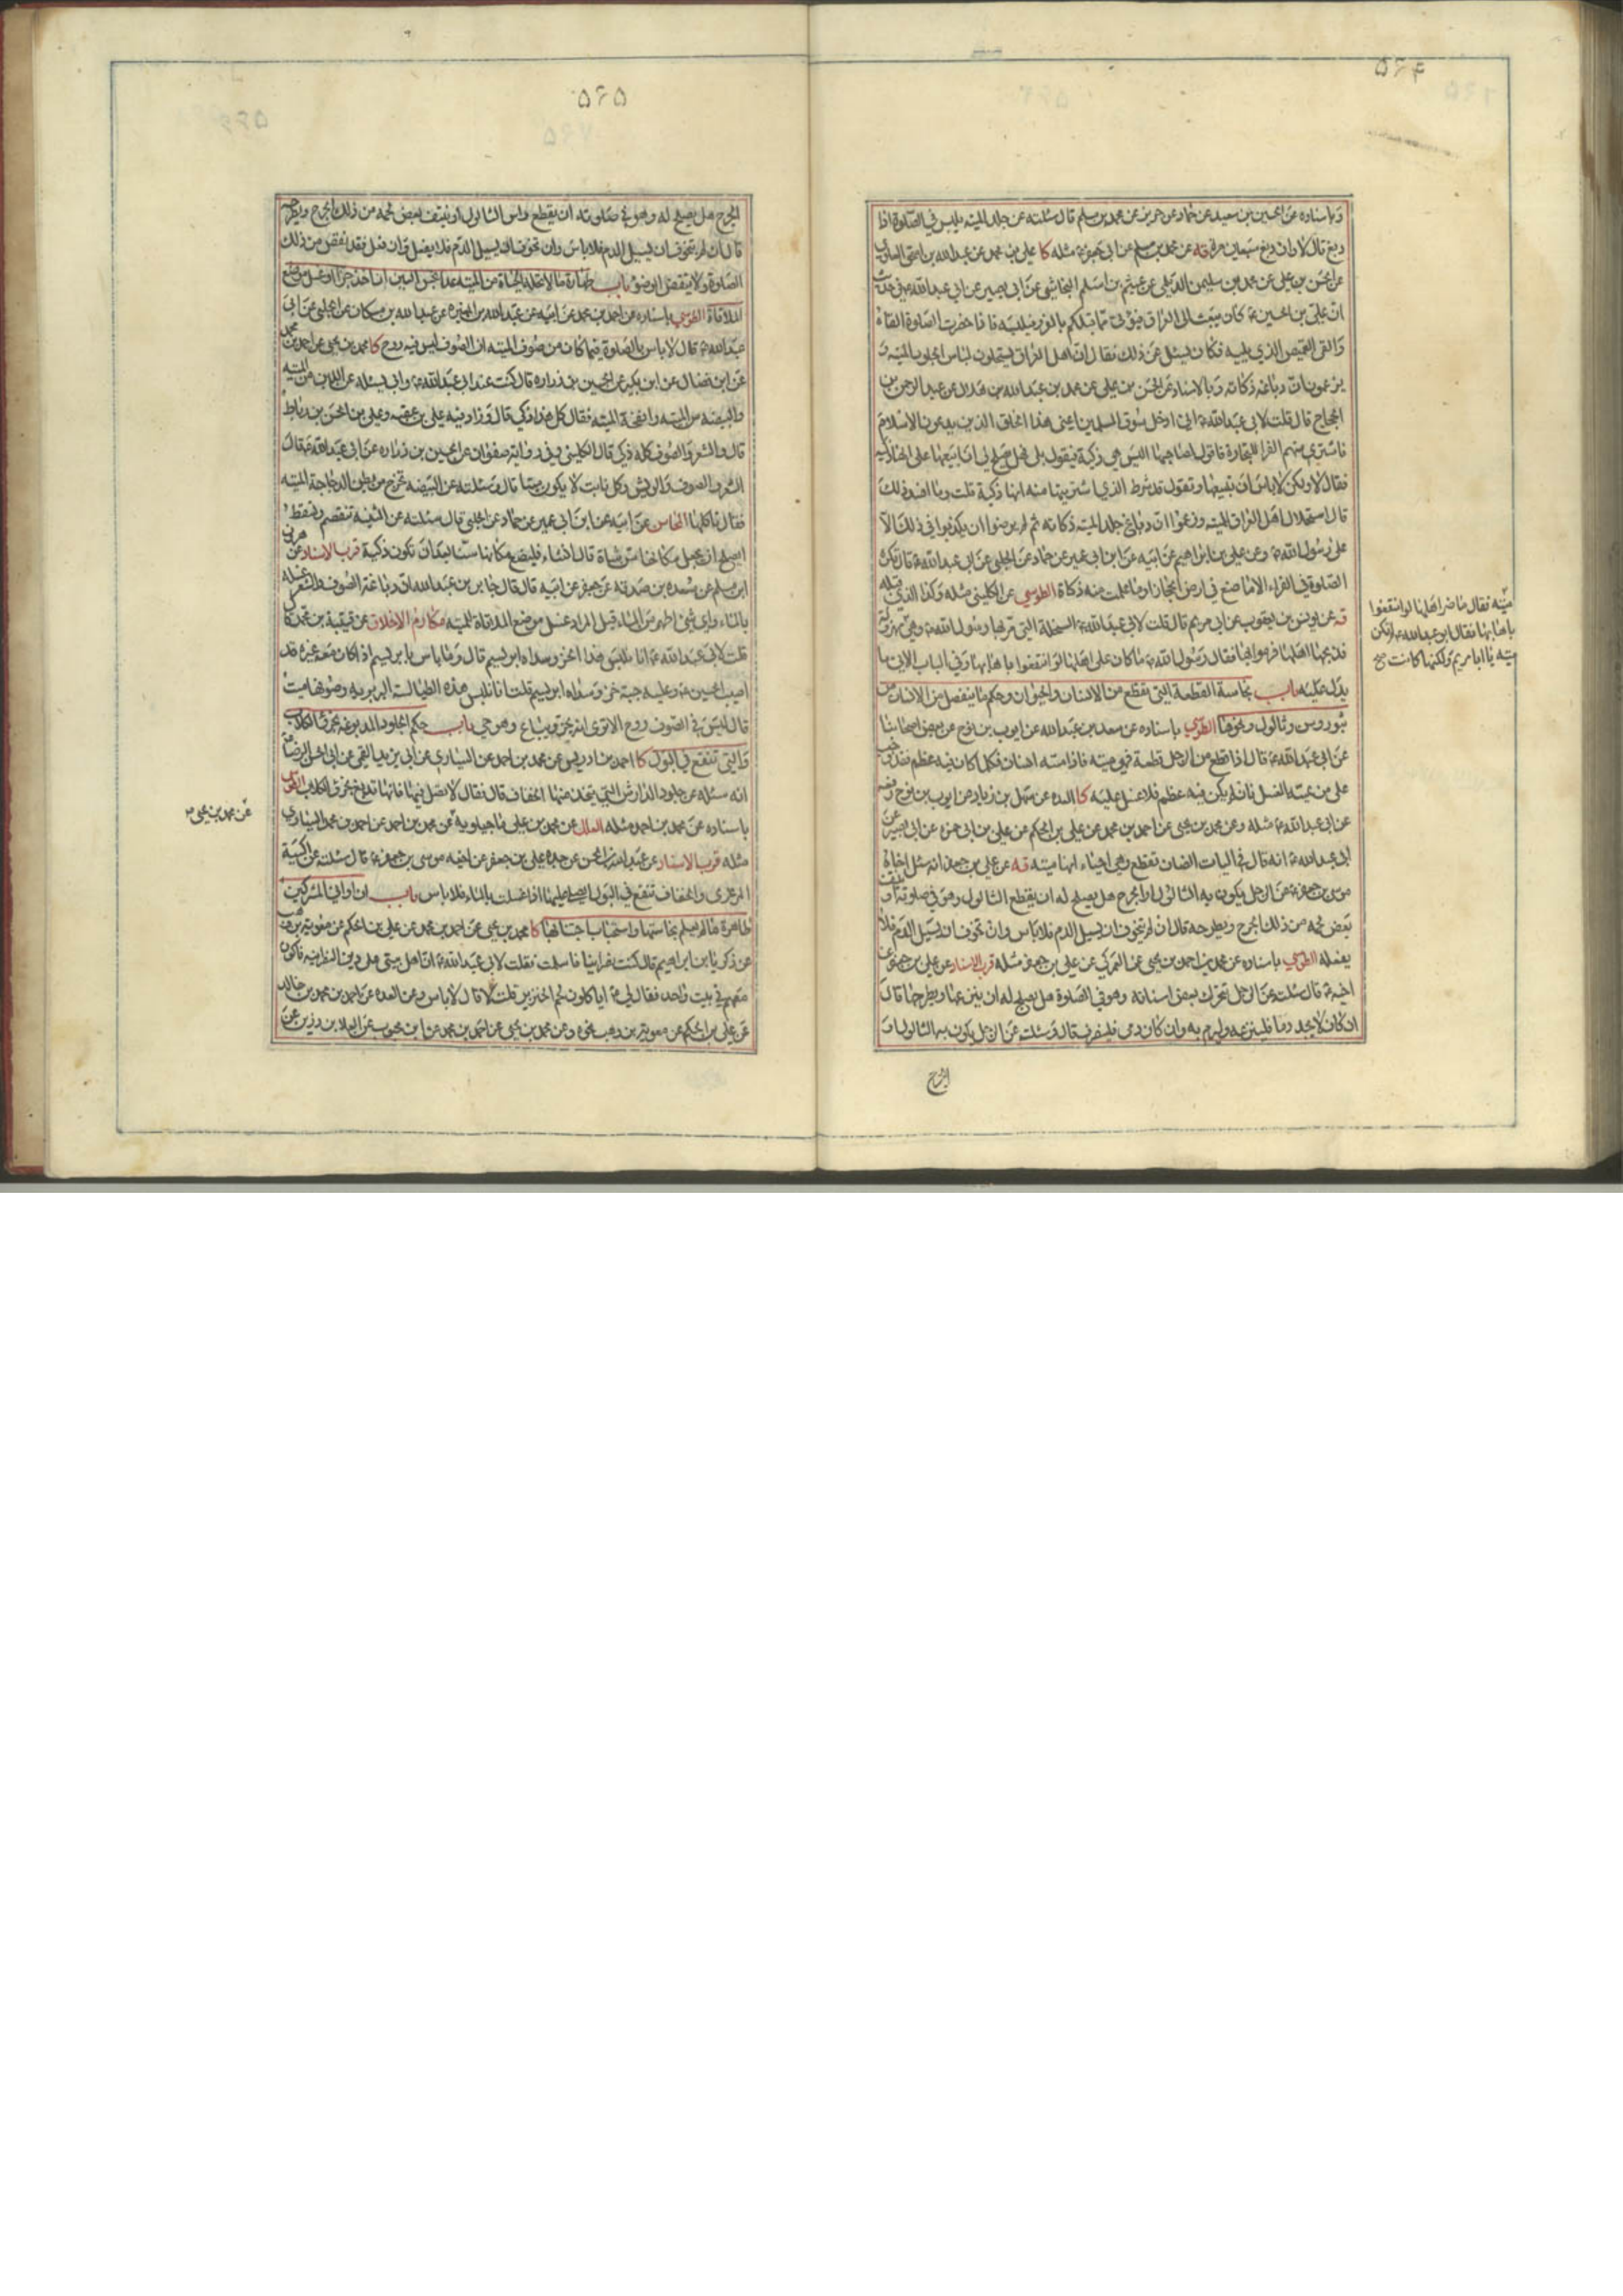 ۵۶۴
وباسناده عن الحسين بن سعيد عن حماد عن حريز عن محمد بن مسلم قال سئلته عن جلد الميته يلبس في الصلوة اذا
دبغ قال لا وان دبغ سبعين مرة قه عن محمد بن مسلم عن ابي جعفر ع مثله كا علي بن محمد عن عبدالله بن اسحق العلوي
عن الحسن بن علي عن محمد بن سليمن الديلمي عن عيثم بن اسلم النجاشي عن ابي بصير عن ابي عبدالله ع في حديث
ان علي بن الحسين ع كان يبعث الى العراق فيؤتى مما قبلكم بالفرو فيلبسه فاذا حضرت الصلوة القاه
والقى القميص الذي يليه فكان يسئل عن ذلك فقال ان اهل العراق يستحلون لباس الجلود الميته و
يزعمون ان دباغه ذكاته وبالاسناد عن الحسن بن علي عن محمد بن عبدالله بن هلال عن عبدالرحمن بن
الحجاج قال قلت لابي عبدالله ع اني ادخل سوق المسلمين اعني هذا الخلق الذين يدعون الاسلام
فاشتري منهم الفراء للتجارة فاقول لصاحبها اليس هي ذكية فيقول بلى فهل يصلح لي ان ابيعها على انها ذكيه
فقال لا ولكن لاباس ان تبيعها وتقول قد شرط الذي اشتريتها منه انها ذكية قلت وما افسد ذلك
قال استحلال اهل العراق الميته وزعموا ان دباغ جلد الميته ذكاته ثم لم يرضوا ان يكذبوا في ذلك الا
على رسول الله ص وعن علي بن ابراهيم عن ابيه عن ابن ابي عمير عن حماد عن الحلبي عن ابي عبدالله ع قال تكره
الصلوة في الفراء الا ما صنع في ارض الحجاز او ما علمت منه ذكاة الطوسي عن الكليني مثله وكذا الذي قبله
قه عن يونس بن يعقوب عن ابي مريم قال قلت لابي عبدالله ع السخلة التي مر بها رسول الله ص وهي
ميته فقال ما ضر اهلها لو انتفعوا
باهابها فقال ابو عبدالله ع لم تكن
ميته يا ابا مريم ولكنها كانت صح
فذبحها اهلها فرموا بها فقال رسول الله ص ما كان على اهلها لو انتفعوا باهابها وفي الباب الاتي ما
يدل عليه باب نجاسة القطعة التي تقطع من الانسان والحيوان وحكم ما ينفصل من الانسان من
بثور وثالول ونحوها الطوسي باسناده عن سعد بن عبدالله عن ايوب بن نوح عن بعض اصحابنا
عن ابي عبدالله ع قال اذا قطع من الرجل قطعة فهي ميته فاذا مسه انسان فكلما كان فيه عظم فقد وجب
على من يمسه الغسل فان لم يكن فيه عظم فلا غسل عليه كا العده عن سهل بن زياد عن ايوب بن نوح رفعه
عن ابي عبدالله ع مثله وعن محمد بن يحيى عن احمد بن محمد عن علي بن الحكم عن علي بن ابي حمزه عن ابي بصير عن
ابي عبدالله ع انه قال في اليات الضان تقطع وهي احياء انها ميته قه عن علي بن جعفر انه سئل اخاه
موسى بن جعفر ع عن الرجل يكون به الثالول او الجرح هل يصلح له ان يقطع الثالول وهو في صلوته او ينتف
بعض لحمه من ذلك الجرح ويطرحه قال ان لم يتخوف ان يسيل الدم فلاباس وان تخوف ان يسيل الدم فلا
يفعله الطوسي باسناده عن محمد بن احمد بن يحيى عن العمركي عن علي بن جعفر مثله قرب الاسناد عن علي بن جعفر عن
اخيه ع قال سئلت عن الرجل تحرك بعض اسنانه وهو في الصلوة هل يصلح له ان ينزعها ويطرحها قال
ان كان لا يجد دما فلينزعه وليرم به وان كان دمي فلينصرف قال وسئلت عن الرجل يكون به الثالول او
الجرح
۵۶۵
الجرح هل يصلح له وهو في صلوته ان يقطع راس الثالول او ينتف بعض لحمه من ذلك الجرح ويطرحه
قال ان لم يتخوف ان يسيل الدم فلاباس وان تخوف ان يسيل الدم فلا يفعل وان فعل فقد نقض من ذلك
الصلوة ولا ينقض الوضوء باب طهارة ما لا تحله الحياة من الميته عدا نجس العين ان اخذ جزا او غسل موضع
الملاقاة الطوسي باسناده عن احمد بن محمد عن ابيه عن عبدالله بن المغيرة عن عبدالله بن مسكان عن الحلبي عن ابي
عبدالله ع قال لاباس بالصلوة فيما كان من صوف الميته ان الصوف ليس فيه روح كا محمد بن يحيى عن احمد بن محمد
عن ابن فضال عن ابن بكير عن الحسين بن زراره قال كنت عند ابي عبدالله ع وابي يسئله عن اللبن من الميته
والبيضه من الميته وانفحة الميته فقال كل هذا ذكي قال وزاد فيه علي بن عقبه وعلي بن الحسن بن رباط
قال والشعر والصوف كله ذكي قال الكليني وفي رواية صفوان عن الحسين بن زراره عن ابي عبدالله ع قال
الشعر والصوف والريش وكل نابت لا يكون ميتا قال وسئلته عن البيضه تخرج من بطن الدجاجة الميته
فقال تاكلها المحاسن عن ابيه عن ابن ابي عمير عن حماد عن الحلبي قال سئلته عن الثنيه تنفصم وتسقط
ايصلح ان يجعل مكانها سن شاة قال ان شاء فليضع مكانها سنا بعد ان تكون ذكية قرب الاسناد عن هرون
ابن مسلم عن مسعده بن صدقة عن جعفر عن ابيه قال قال جابر بن عبدالله ان دباغة الصوف والشعر غسله
بالماء واي شئ اطهر من الماء قيل المراد غسل موضع الملاقاة للميته مكارم الاخلاق عن قتيبة بن محمد قال
قلت لابي عبدالله ع انا نلبس هذا الخز وسداه ابريسم قال وما باس بابريسم اذا كان معه غيره قد
اصيب الحسين ع وعليه جبة خز وسداه ابريسم قلت انا نلبس هذه الطيالسة البربريه وصوفها ميت
قال ليس في الصوف روح الا ترى انه يجز ويباع وهو حي باب حكم الجلود المدبوغه بخرء الكلاب
والتي تنقع في البول كا احمد بن ادريس عن محمد بن احمد عن السياري عن ابي يزيد القمي عن ابي الحسن الرضا ع
انه سئله عن جلود الدارش التي يتخذ منها الخفاف قال فقال لا تصل فيها فانها تدبغ بخرء الكلاب الطوسي
باسناده عن محمد بن احمد مثله العلل عن محمد بن علي ماجيلويه عن محمد بن احمد عن احمد بن محمد السياري
عن محمد بن يحيى صح
مثله قرب الاسناد عن عبدالله بن الحسن عن جده علي بن جعفر عن اخيه موسى بن جعفر ع قال سئلته عن اكسية
المرعزى والخفاف تنقع في البول ايصلى عليها قال اذا غسلت بالماء فلاباس باب ان اواني المشركين
طاهرة ما لم يعلم نجاستها واستحباب اجتنابها كا محمد بن يحيى عن احمد بن محمد عن علي بن الحكم عن معوية بن وهب
عن زكريا بن ابراهيم قال كنت نصرانيا فاسلمت فقلت لابي عبدالله ع ان اهل بيتي على دين النصرانيه فاكون
معهم في بيت واحد فقال لي ع اياكلون لحم الخنزير قلت لا قال لاباس وعن العده عن احمد بن محمد بن خالد
عن علي بن الحكم عن معوية بن وهب نحوه وعن محمد بن يحيى عن احمد بن محمد عن ابن محبوب عن العلا بن رزين عن